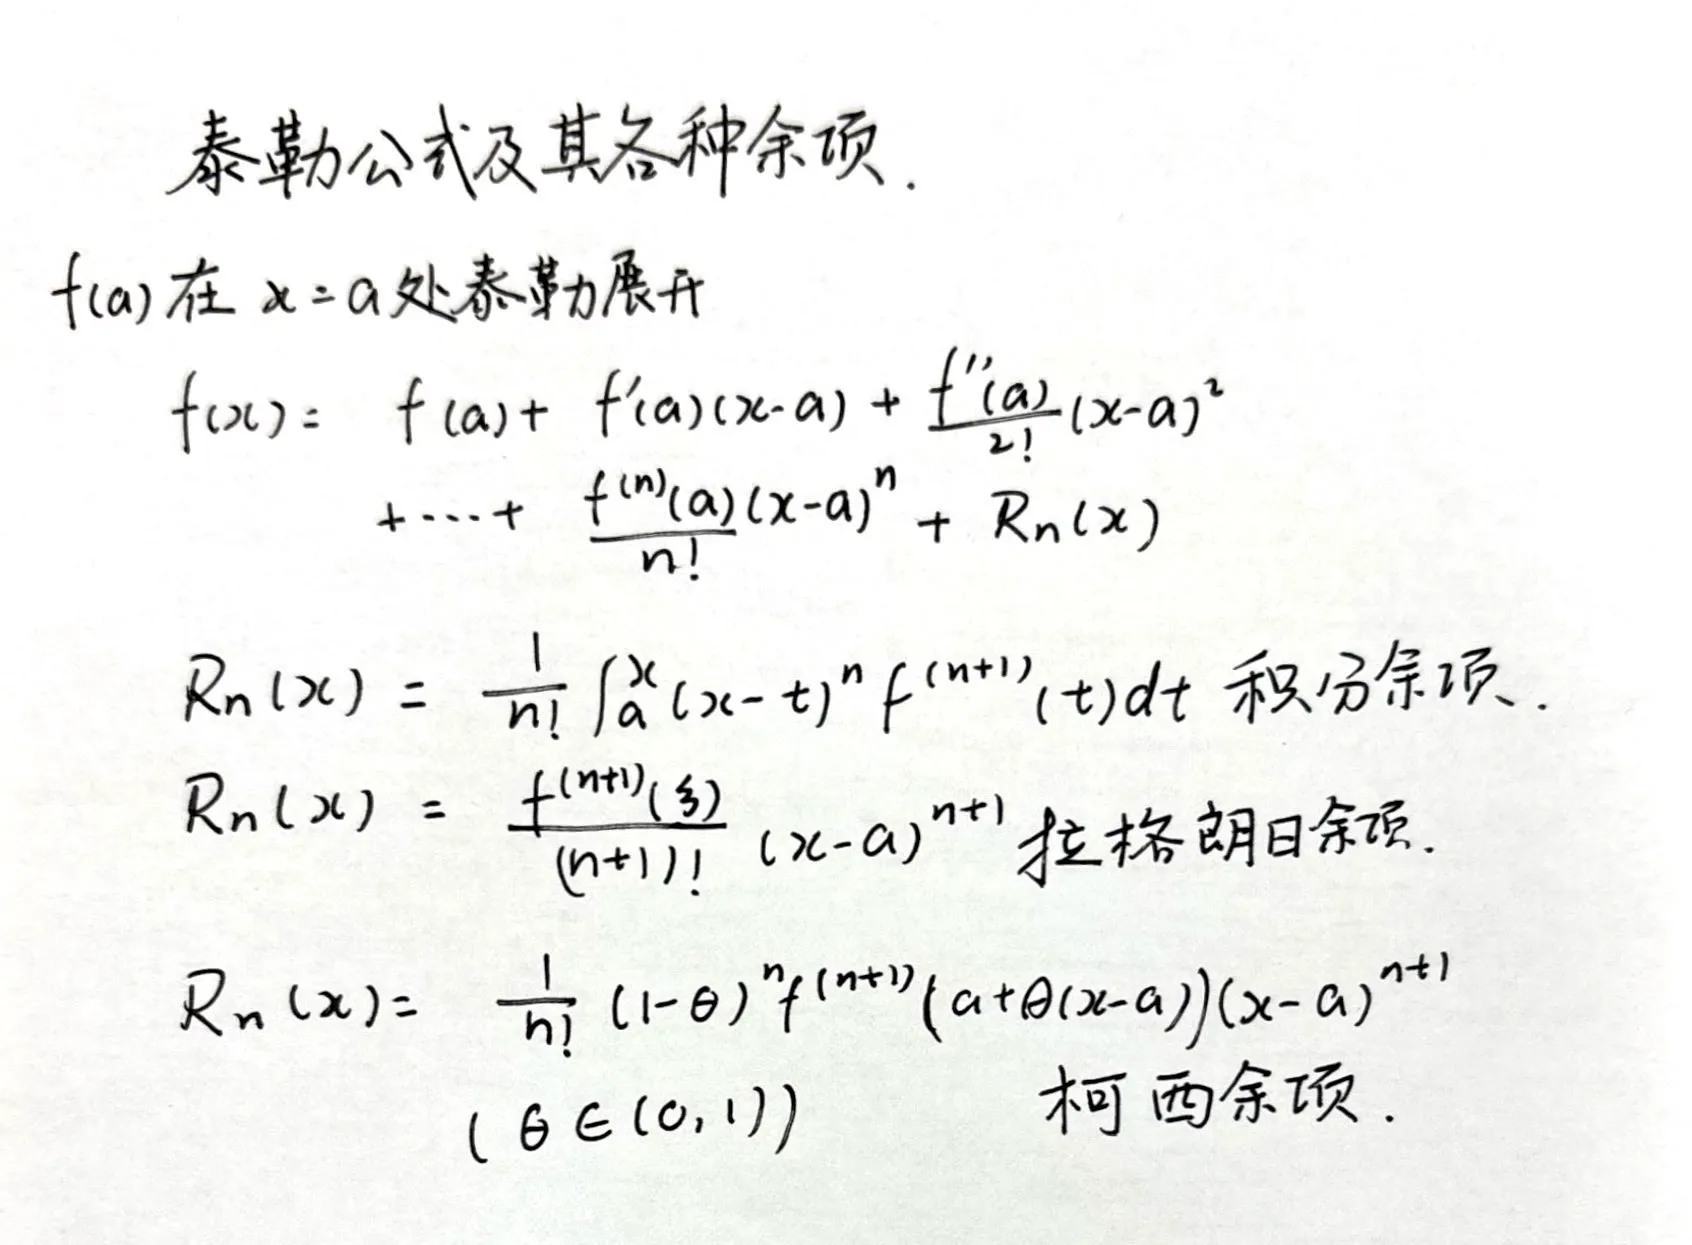 泰勒公式及其各种余项.
f(a)在 x=a处泰勒展开
f(x)= f(a)+ f'(a)(x-a) + \frac{f''(a)}{2!}(x-a)^2
+···+ \frac{f^{(n)}(a)}{n!}(x-a)^n + R_n(x)
R_n(x) = \frac{1}{n!} \int_a^x (x-t)^n f^{(n+1)}(t)dt 积分余项.
R_n(x) = \frac{f^{(n+1)}(ξ)}{(n+1)!} (x-a)^{n+1} 拉格朗日余项.
R_n(x)= \frac{1}{n!} (1-θ)^n f^{(n+1)}(a+θ(x-a))(x-a)^{n+1}
(θ∈(0,1)) 柯西余项.